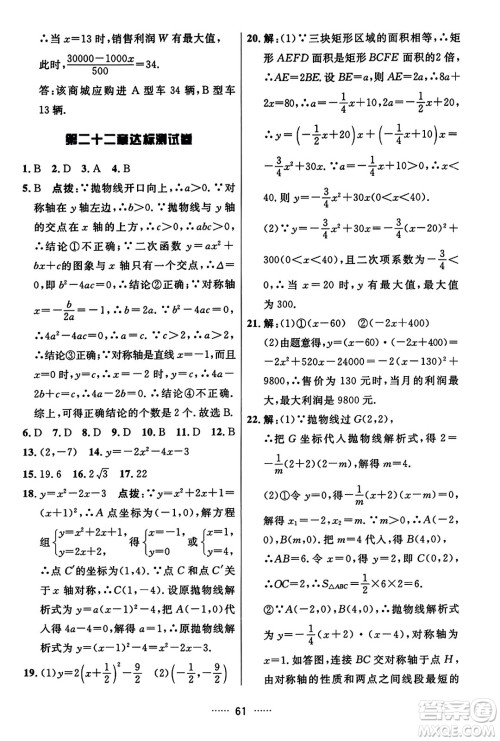 ∴当 x=13 时,销售利润 W 有最大值,
此时,(30000-1000x)/500=34.
答:该商城应购进 A 型车 34 辆,B 型车
13 辆.
第二十二章达标测试卷
1. B 2. D 3. A 4. B
5. B 点拨:∵抛物线开口向上,∴a>0.∵对
称轴在 y 轴左边,∴b>0.∵抛物线与 y 轴
的交点在 x 轴的上方,∴c>0,∴abc>0,
∴结论①不正确;∵二次函数 y=ax²+
bx+c 的图象与 x 轴只有一个交点,∴Δ=
0,即 b²-4ac=0,∴结论②不正确;
∵-b/2a=-1,∴b=2a.∵b²-4ac=0,
∴4a²-4ac=0,∴a=c.∵c>2,∴a>2,
∴结论③正确;∵对称轴是 x=-1,
∴x=-2 和 x=0 时,y 的值相等,
∴4a-2b+c=c>2,∴结论④正确.
综上,可得正确结论的个数是 2.故选 B.
6. D 7. D 8. D 9. A 10. D 11. D 12. B
13. (2,-7) 14. y=-2x²-4x-3
15. 19.6 16. 2√3 17. 22
18. y=x²-2x-3 点拨:∵y=x²+2x+1=
(x+1)²,∴A 点坐标为(-1,0),解方程
组{y=x²+2x+1, y=2x+2 得{x=-1, y=0 或{x=1, y=4,
∴点 C′的坐标为(1,4).∵点 C 和点 C′关于
x 轴对称,∴C(1,-4).设原抛物线解析
式为 y=a(x-1)²-4,把 A(-1,0)的坐标
代入得 4a-4=0,解得 a=1,∴原抛物线解
析式为 y=(x-1)²-4=x²-2x-3.
19. (1)y=2(x+1/2)²-9/2 (2)(-1/2,-9/2)
20. 解:(1)∵三块矩形区域的面积相等,∴矩
形 AEFD 面积是矩形 BCFE 面积的2 倍,
∴AE=2BE.设 BE=a,则 AE=2a,∴8a+
2x=80,∴a=-1/4x+10,2a=-1/2x+
20,∴y=(-1/4x+10)x+(-1/2x+20)x=
-3/4x²+30x.∵a=-1/4x+10>0,∴x<
40.∴y=-3/4x²+30x(0<x<40).
(2)∵y=-3/4x²+30x=-3/4(x-20)²+
300(0<x<40),且二次项系数为-3/4<0,
∴当 x=20 时,y 有最大值,最大
值为 300.
21. 解:(1)①(x-60) ②(-2x+400)
(2)由题意得,y=(x-60)(-2x+400)=
-2x²+520x-24000=-2(x-130)²+
9800,∴售价为 130 元时,当月的利润最
大,最大利润是 9800 元.
22. 解:(1)∵抛物线过 G(2,2),
∴把 G 坐标代入抛物线解析式得:2=
-1/m(2+2)(2-m),∴m=4.
(2)①令 y=0,得-1/m(x+2)(x-m)=0,
解得 x₁=-2,x₂=m.∵m>0,∴A(-2,0),
B(m,0).把 m=4 代入,得 B(4,0),
∴AB=6.令 x=0,得 y=2,∴C(0,2),
∴OC=2,∴S△ABC=1/2×6×2=6.
②∵A(-2,0),B(4,0),∴抛物线解析式
为 y=-1/4(x+2)(x-4)的对称轴为 x=
1.如答图,连接 BC 交对称轴于点 H,
由对称轴的性质和两点之间线段最短的
61